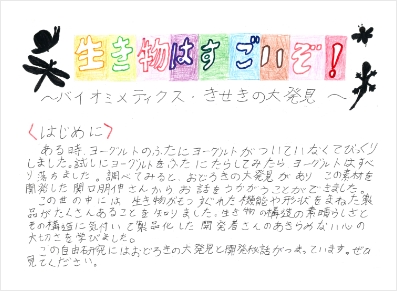 生き物はすごいぞ!
～バイオミメティクス・きせきの大発見～
<はじめに>
ある時、ヨーグルトのふたにヨーグルトがついていなくてびっくり
しました。試しにヨーグルトをふたにたらしてみたら ヨーグルトはすべ
り落ちました。調べてみると、おどろきの大発見があり この素材を
開発した 関口朋伸さんから お話をうかがうことができました。
この世の中には 生き物がもつすぐれた機能や形状をまねた製
品がたくさんあることを知りました。生き物の構造の素晴らしさと
その構造に気付いて製品化した 開発者さんのあきらめない心の
大切さを学びました。
この自由研究にはおどろきの大発見と開発秘話がつまっています。ぜひ
見てください。